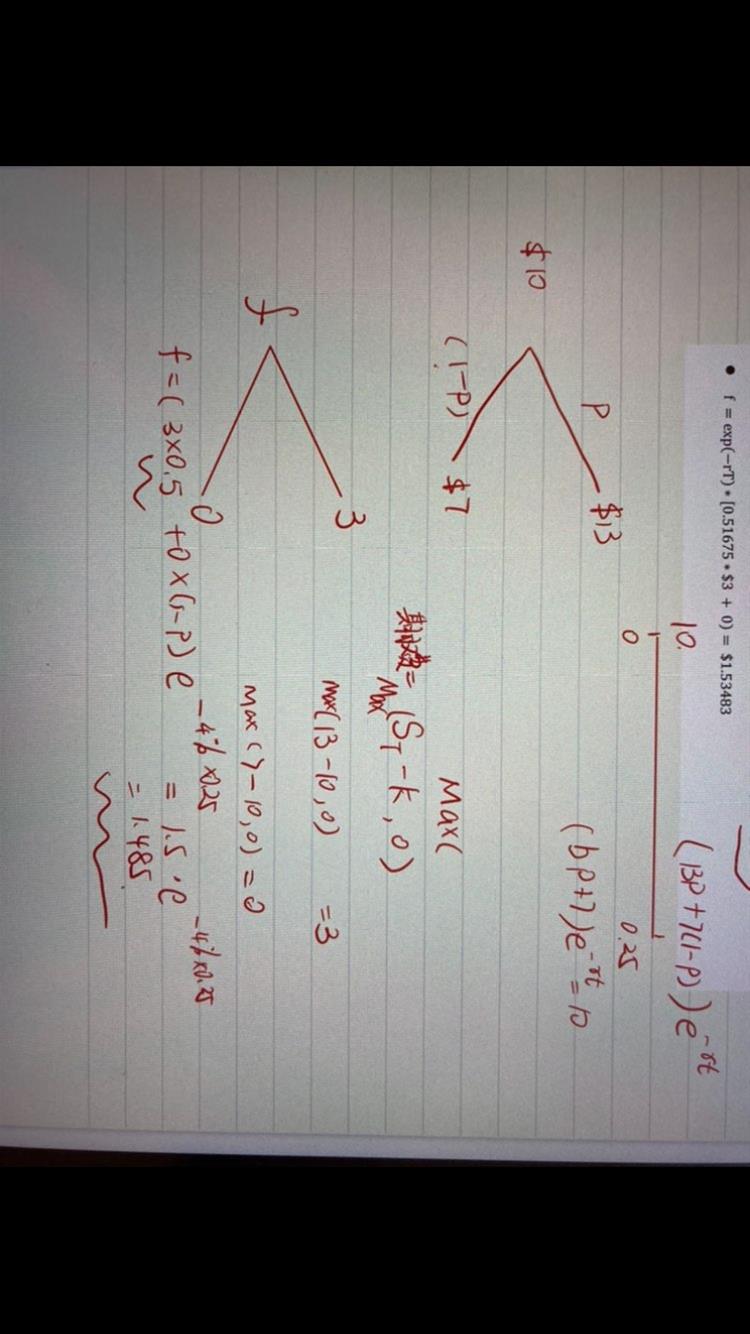 • f = exp(−rT) * [0.51675 * $3 + 0) = $1.53483
10. (13P+7(1-P))e^-rt
0 0.25
P $13
(6P+7)e^-rt = 10
$10
(1-P) $7
Max(
= Max(S_T-k,0)
3 max(13-10,0) =3
f
Max(7-10,0)=0
0
f=(3×0.5+0×(1-P)e^-4%×0.25 = 1.5·e^-4%×0.25
= 1.485